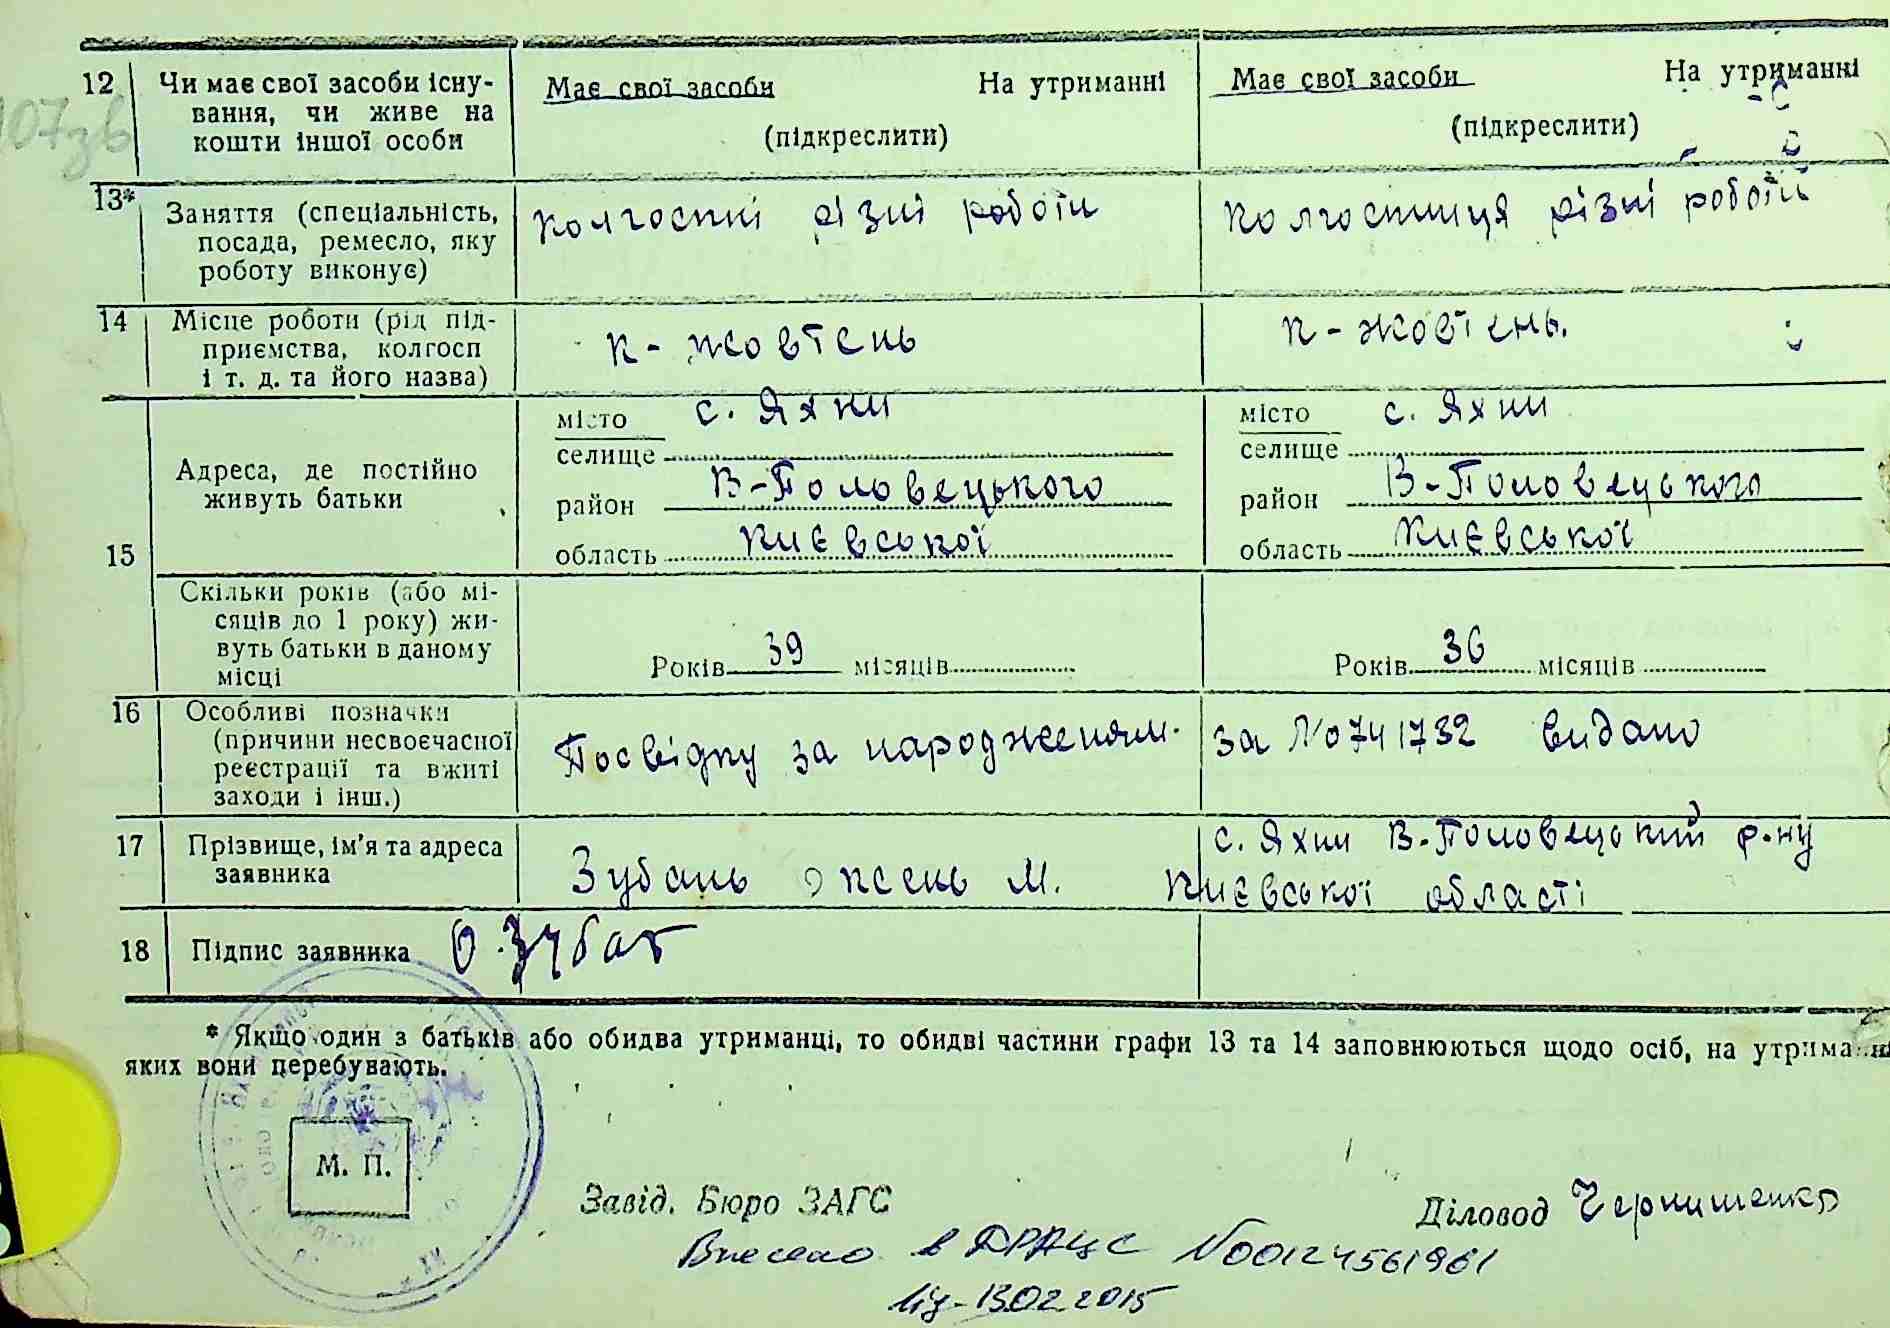 107зв
12 Чи має свої засоби існу-
вання, чи живе на
кошти іншої особи
Має свої засоби На утриманні
(підкреслити)
Має свої засоби На утриманні
(підкреслити)
13* Заняття (спеціальність,
посада, ремесло, яку
роботу виконує)
колгоспні різні роботи
колгоспниця різні роботи
14 Місце роботи (рід під-
приємства, колгосп
і т. д. та його назва)
к-жовтень
к-жовтень.
15 Адреса, де постійно
живуть батьки
місто с. Яхни
селище
район В-Половецького
область Києвської
місто с. Яхни
селище
район В-Половецького
область Києвської
Скільки років (або мі-
сяців до 1 року) жи-
вуть батьки в даному
місці
Років 39 місяців
Років 36 місяців
16 Особливі позначки
(причини несвоєчасної
реєстрації та вжиті
заходи і інш.)
Посвідку за народженням.
за №0741732 видано
17 Прізвище, ім'я та адреса
заявника
Зубань Оксень М.
с. Яхни В-Половецький р-ну
Києвської області
18 Підпис заявника О.Зубан
* Якщо один з батьків або обидва утриманці, то обидві частини графи 13 та 14 заповнюються щодо осіб, на утриманні
яких вони перебувають.
М. П.
Завід. Бюро ЗАГС
Діловод Чернишенко
Внесено в ДРАЦС №00124561961
від-13.02.2015